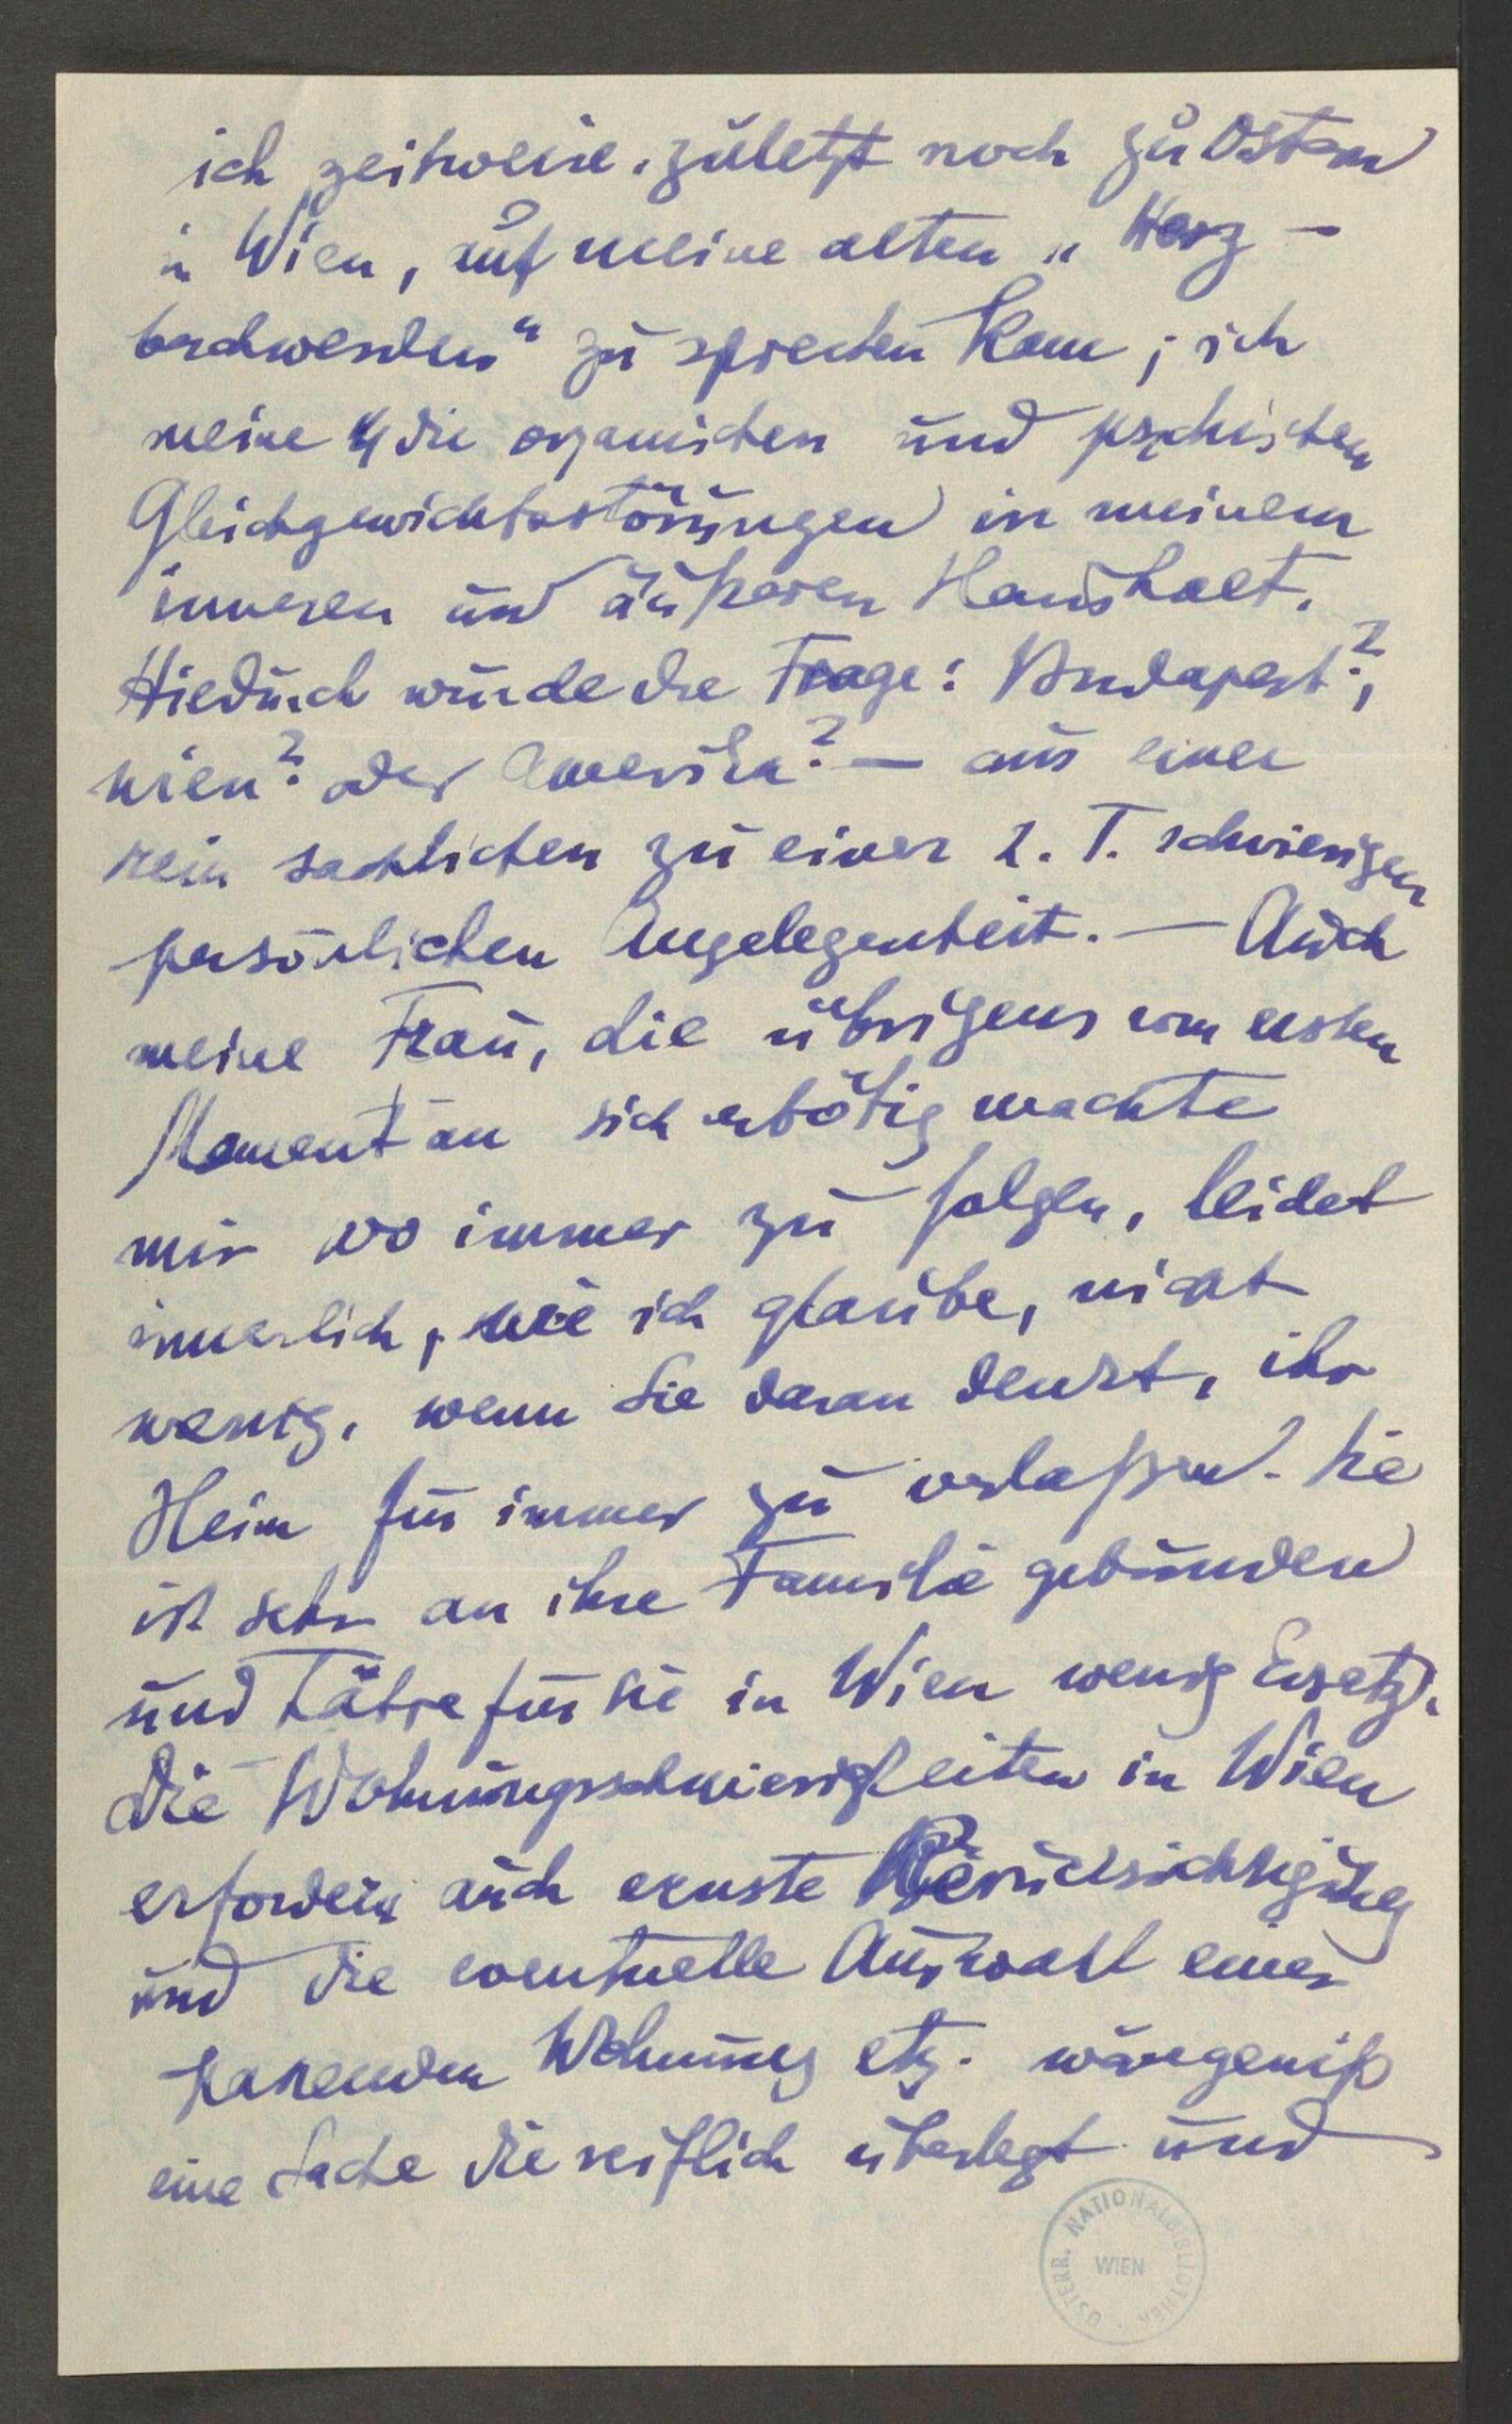 ich zeitweise, zuletzt noch zu Ostern
in Wien, auf meine alten „Herz-
beschwerden“ zu sprechen kam; ich
meine die organischen und psychischen
Gleichgewichtsstörungen in meinem
inneren und äußeren Haushalt.
Hiedurch wurde die Frage: Budapest?,
Wien? oder Amerika? — aus einer
rein sachlichen zu einer z. T. schwierigen
persönlichen Angelegenheit. — Auch
meine Frau, die übrigens vom ersten
Moment an sich erbötig machte
mir wo immer zu folgen, leidet
innerlich, wie ich glaube, nicht
wenig, wenn sie daran denkt, ihr
Heim für immer zu verlaßen. Sie
ist sehr an ihre Familie gebunden
und hätte für sie in Wien wenig Ersatz.
Die Wohnungsschwierigkeiten in Wien
erfordern auch ernste Berücksichtigung
und die eventuelle Auswahl einer
passenden Wohnung etz. wäre gewiß
eine Sache die reiflich überlegt und
ÖSTERR. NATIONALBIBLIOTHEK
WIEN